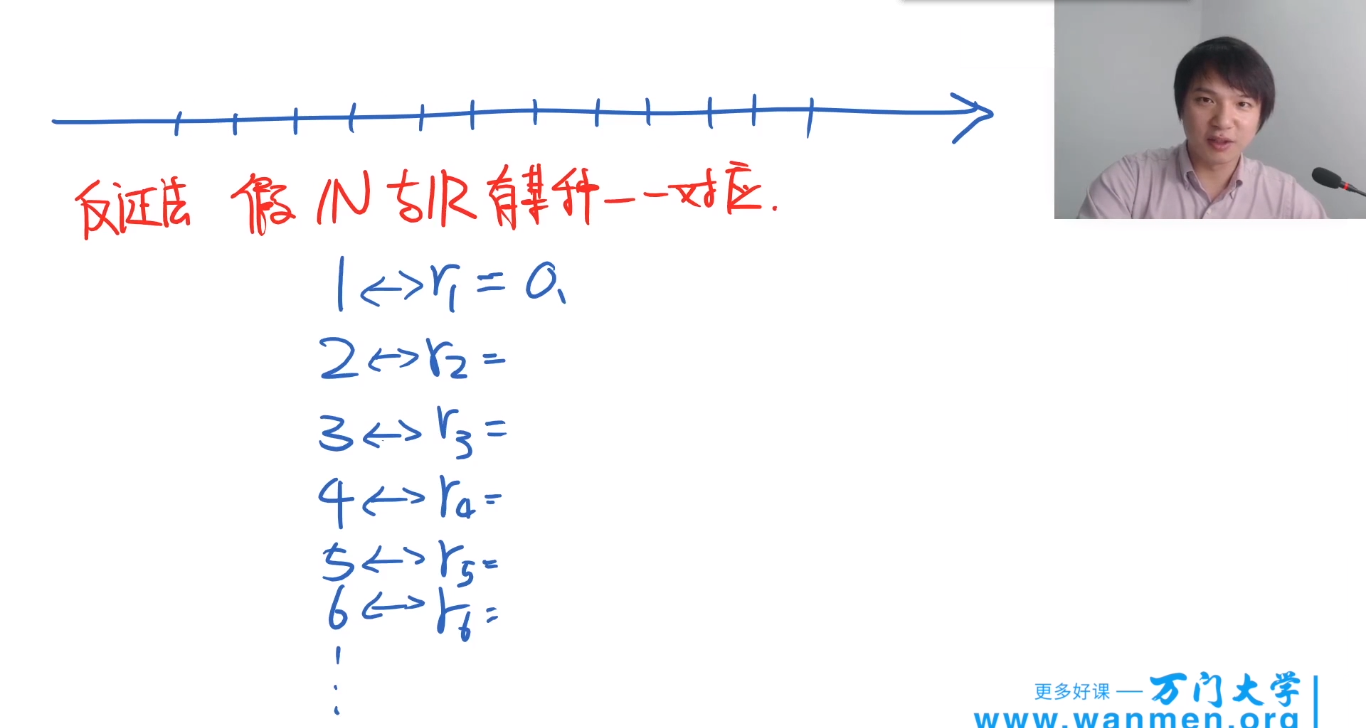 反证法 假 ℕ 与 ℝ 有某种一一对应.
1 ↔ r₁ = 0.
2 ↔ r₂ =
3 ↔ r₃ =
4 ↔ r₄ =
5 ↔ r₅ =
6 ↔ r₆ =
⋮
更多好课 — 万门大学
www.wanmen.org